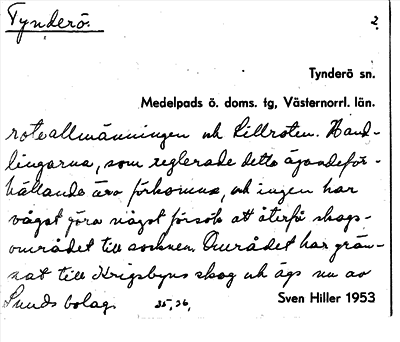 Tynderö.
2
Tynderö sn.
Medelpads ö. doms. tg, Västernorrl. län.
roteallmänningen och Lillroten. Hand-
lingarna, som reglerade detta ägandeför-
hållande äro förkomna, och ingen har
vågat göra något försök att återfå skogs-
området till socknen. Området har grän-
sat till Krigsbyns skog och ägs nu av
Sunds bolag. 35, 36,
Sven Hiller 1953